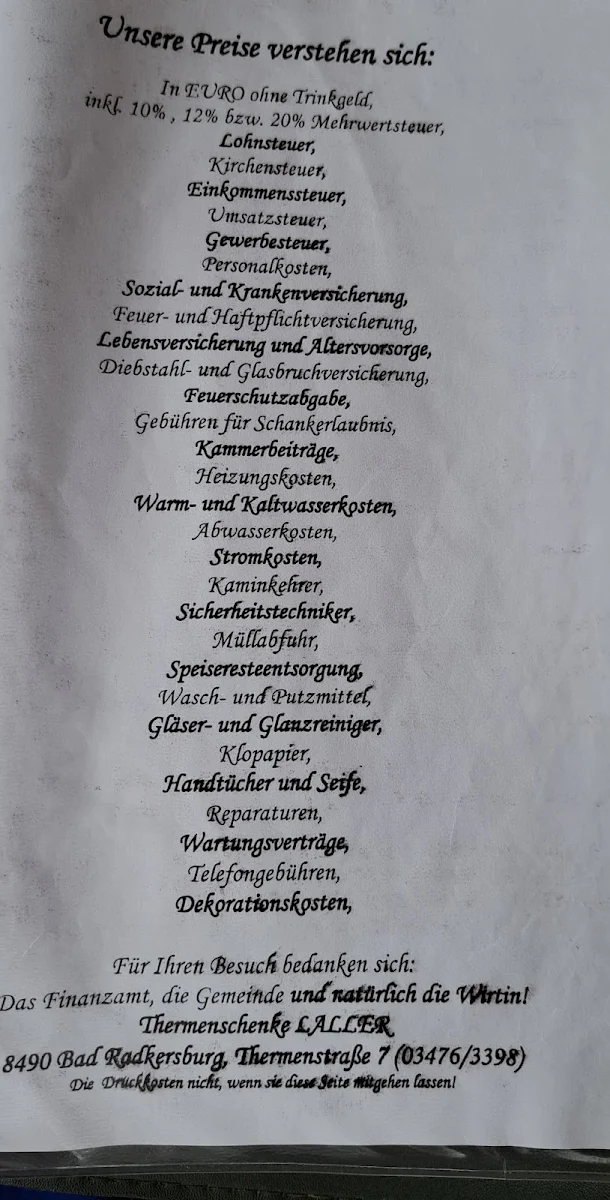 Unsere Preise verstehen sich:
In EURO ohne Trinkgeld,
inkl. 10% , 12% bzw. 20% Mehrwertsteuer,
Lohnsteuer,
Kirchensteuer,
Einkommenssteuer,
Umsatzsteuer,
Gewerbesteuer,
Personalkosten,
Sozial- und Krankenversicherung,
Feuer- und Haftpflichtversicherung,
Lebensversicherung und Altersvorsorge,
Diebstahl- und Glasbruchversicherung,
Feuerschutzabgabe,
Gebühren für Schankerlaubnis,
Kammerbeiträge,
Heizungskosten,
Warm- und Kaltwasserkosten,
Abwasserkosten,
Stromkosten,
Kaminkehrer,
Sicherheitstechniker,
Müllabfuhr,
Speiseresteentsorgung,
Wasch- und Putzmittel,
Gläser- und Glanzreiniger,
Klopapier,
Handtücher und Seife,
Reparaturen,
Wartungsverträge,
Telefongebühren,
Dekorationskosten,
Für Ihren Besuch bedanken sich:
Das Finanzamt, die Gemeinde und natürlich die Wirtin!
Thermenschenke LALLER
8490 Bad Radkersburg, Thermenstraße 7 (03476/3398)
Die Druckkosten nicht, wenn sie diese Seite mitgehen lassen!